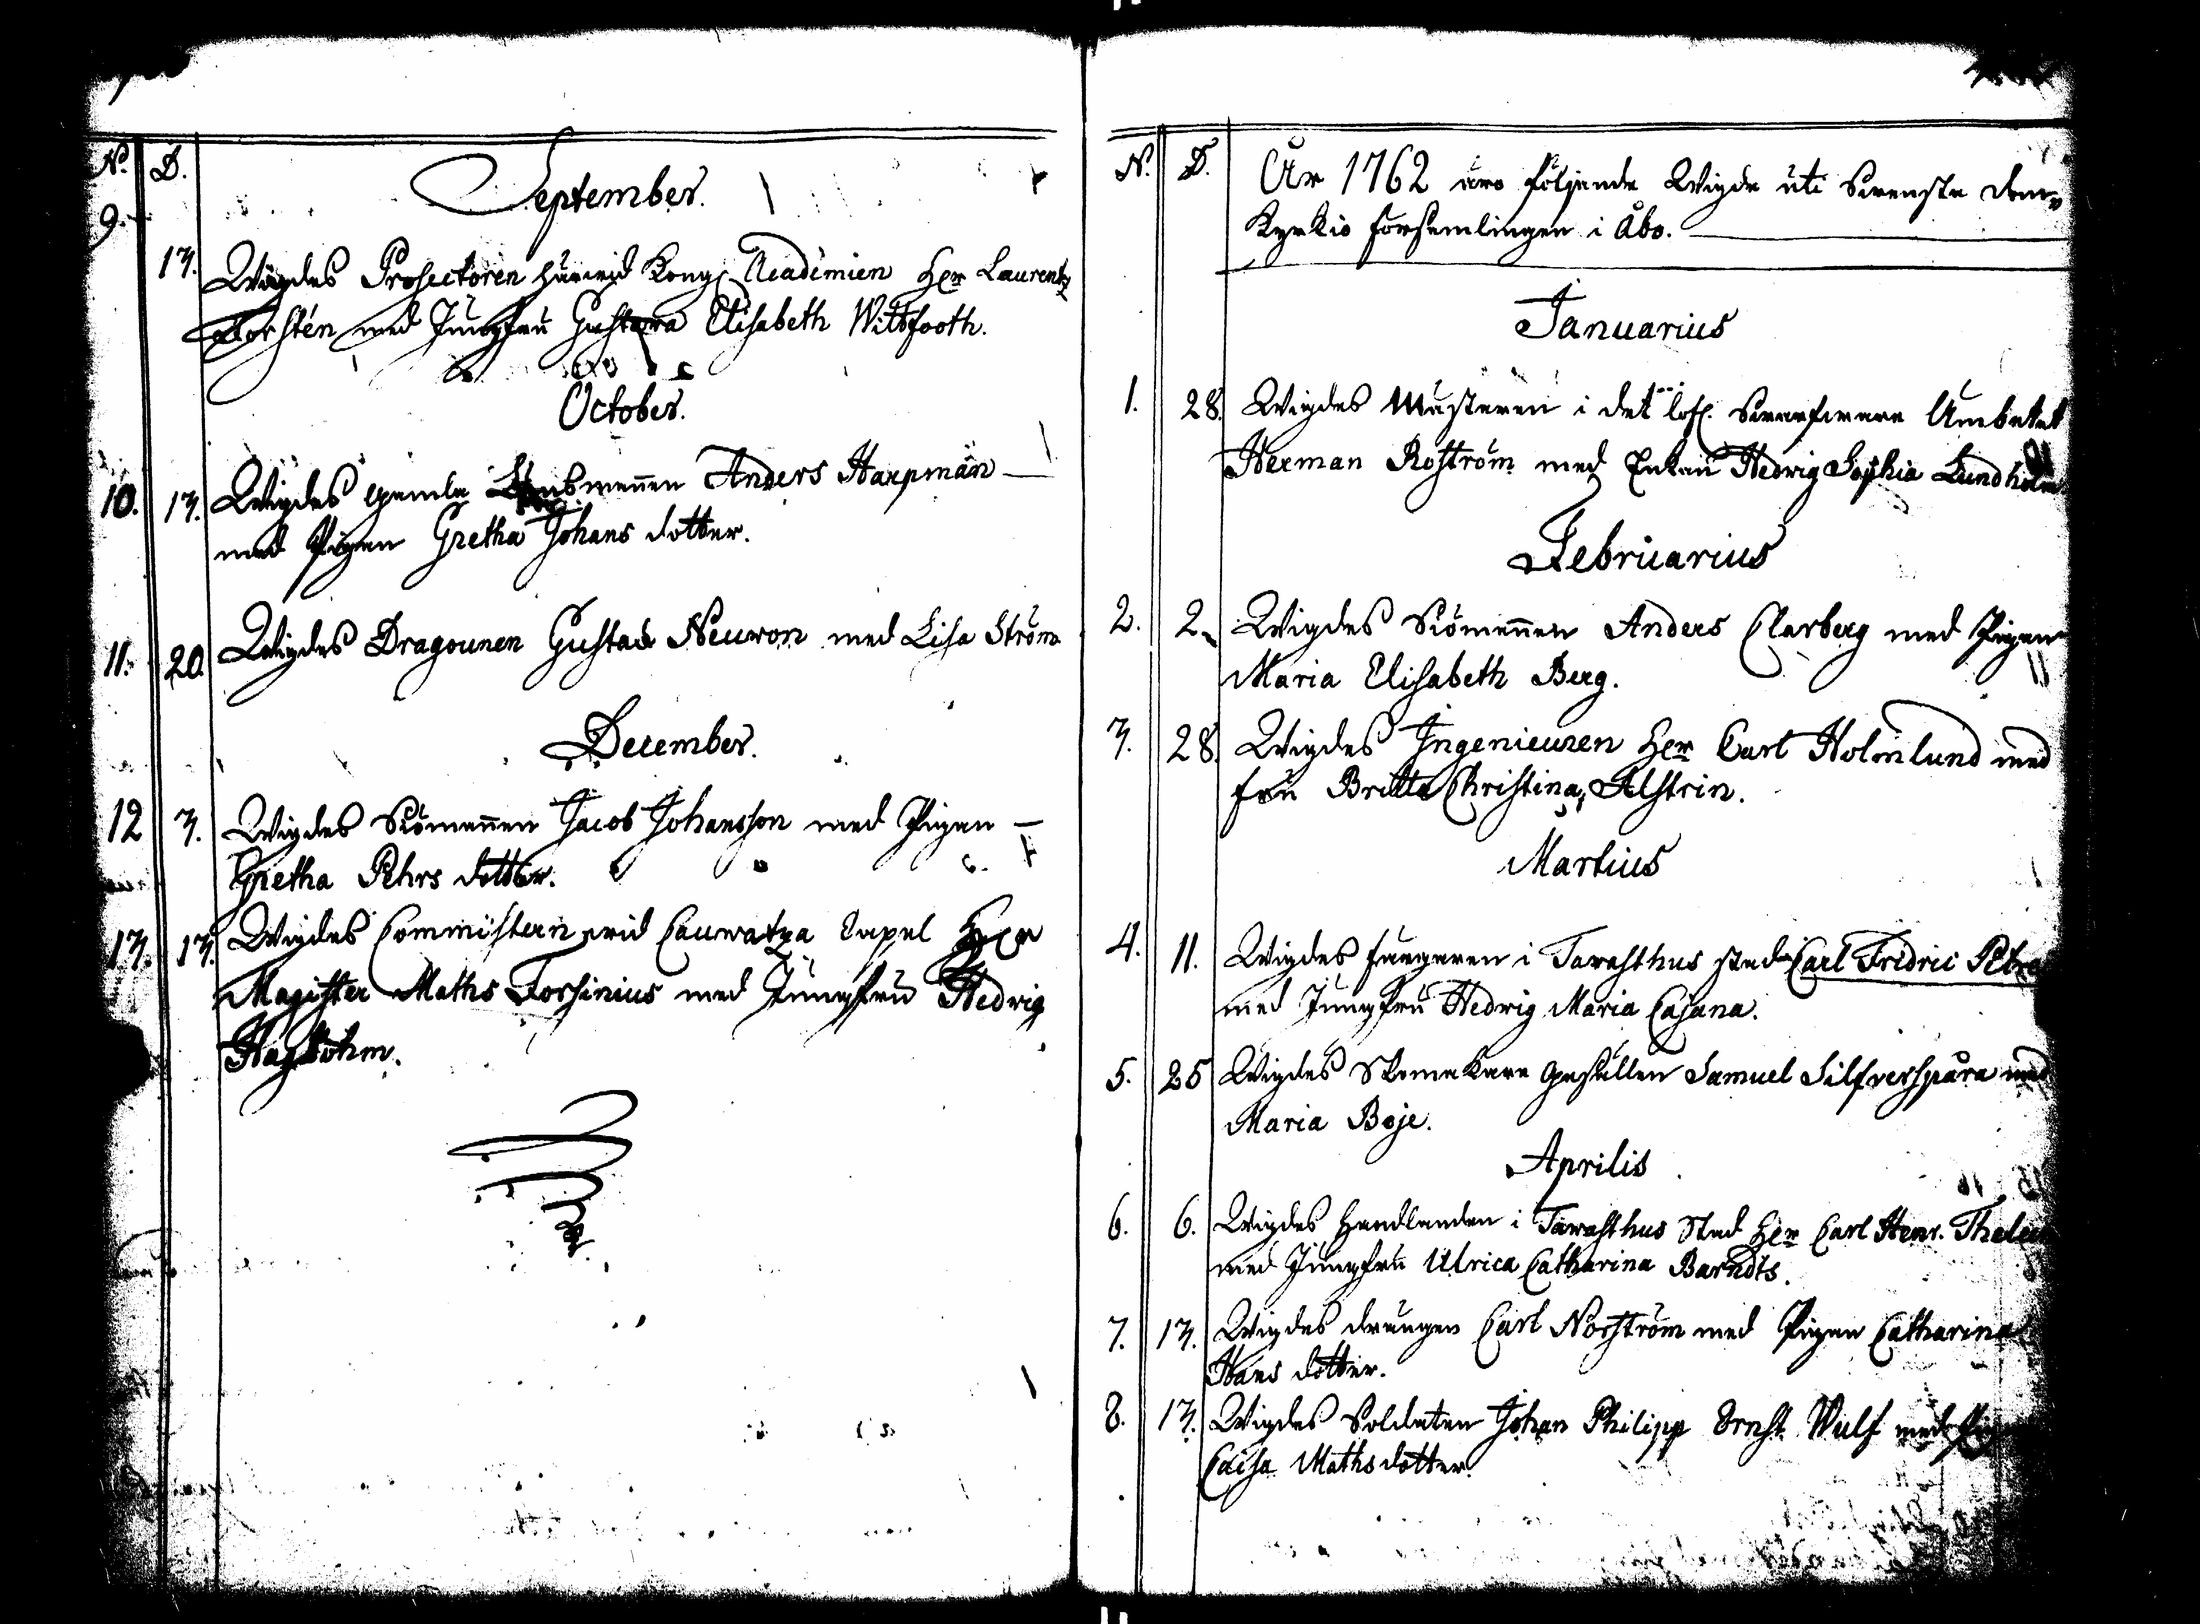 N. D.
September.
9.
13. Wigdes Prosectoren härwid Kongl Academien Her Laurentz
Torstén med Jungfru Gustava Elisabeth Wittfooth.
October.
10. 13. Wigdes gamla Anders Harpman
med Pigan Gretha Johans dotter.
11. 20 Wigdes Dragounen Gustav Neuron med Lisa Ström
December.
12 3. Wigdes Siömannen Jacob Johansson med Pigan
Gretha Pehrs dotter.
13. 13. Wigdes Commistern wid Cauwatza Capel Her
Magister Maths Forsinius med Jungfru Hedrig
N. D. År 1762 äro följande Wigde uti Swenska dom
Kyrkio församlingen i Åbo.
Januarius
1. 28. Wigdes Mästaren i det löfl. Swarfware Ämbetet
Herman Roström med Enkan Hedvig Sophia Lundholm
Februarius
2. 2. Wigdes Siömannen Anders Clarberg med Pigan
Maria Elisabeth Berg.
3. 28 Wigdes Ingenieuren Her Carl Holmlund med
fru Britta Christina Alstrin.
Martius
4. 11. Wigdes färgaren i Tavasthus stad Carl Fridric
med Jungfru Hedvig Maria Cajana.
5. 25 Wigdes Skomakare gesällen Samuel Silfverspåra med
Maria Boje.
Aprilis
6. 6. Wigdes Handlanden i Tavasthus Stad Her Carl Henr.
med Jungfru Ulrica Catharina Barndts.
7. 13. Wigdes drängen Carl Norström med Pigan Catharina
Hans dotter.
8. 13. Wigdes Soldaten Johan Philipp Ernst Wulf med
Caisa Maths dotter.